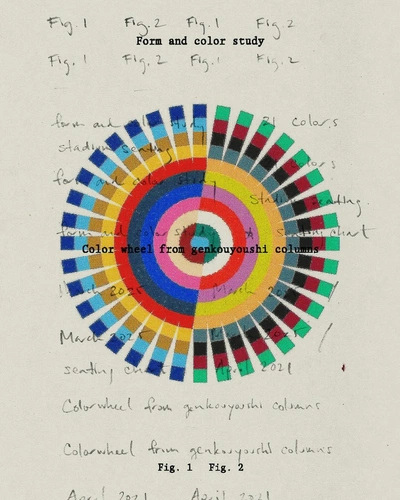 Fig. 1 Fig. 2 Fig. 1 Fig. 2
Form and color study
Fig. 1 Fig. 2 Fig. 1 Fig. 2
form and color study 21 colors
stadium seating
colors
form and color study
Stadium seating.
form and color study seating chart
Color wheel from genkouyoushi columns
March 2025 March 2025
March 2025 March 2025
seating chart April 2021
Colorwheel from genkouyoushi columns
Colorwheel from genkouyoushi columns
Fig. 1 Fig. 2
April 2021 April 2021